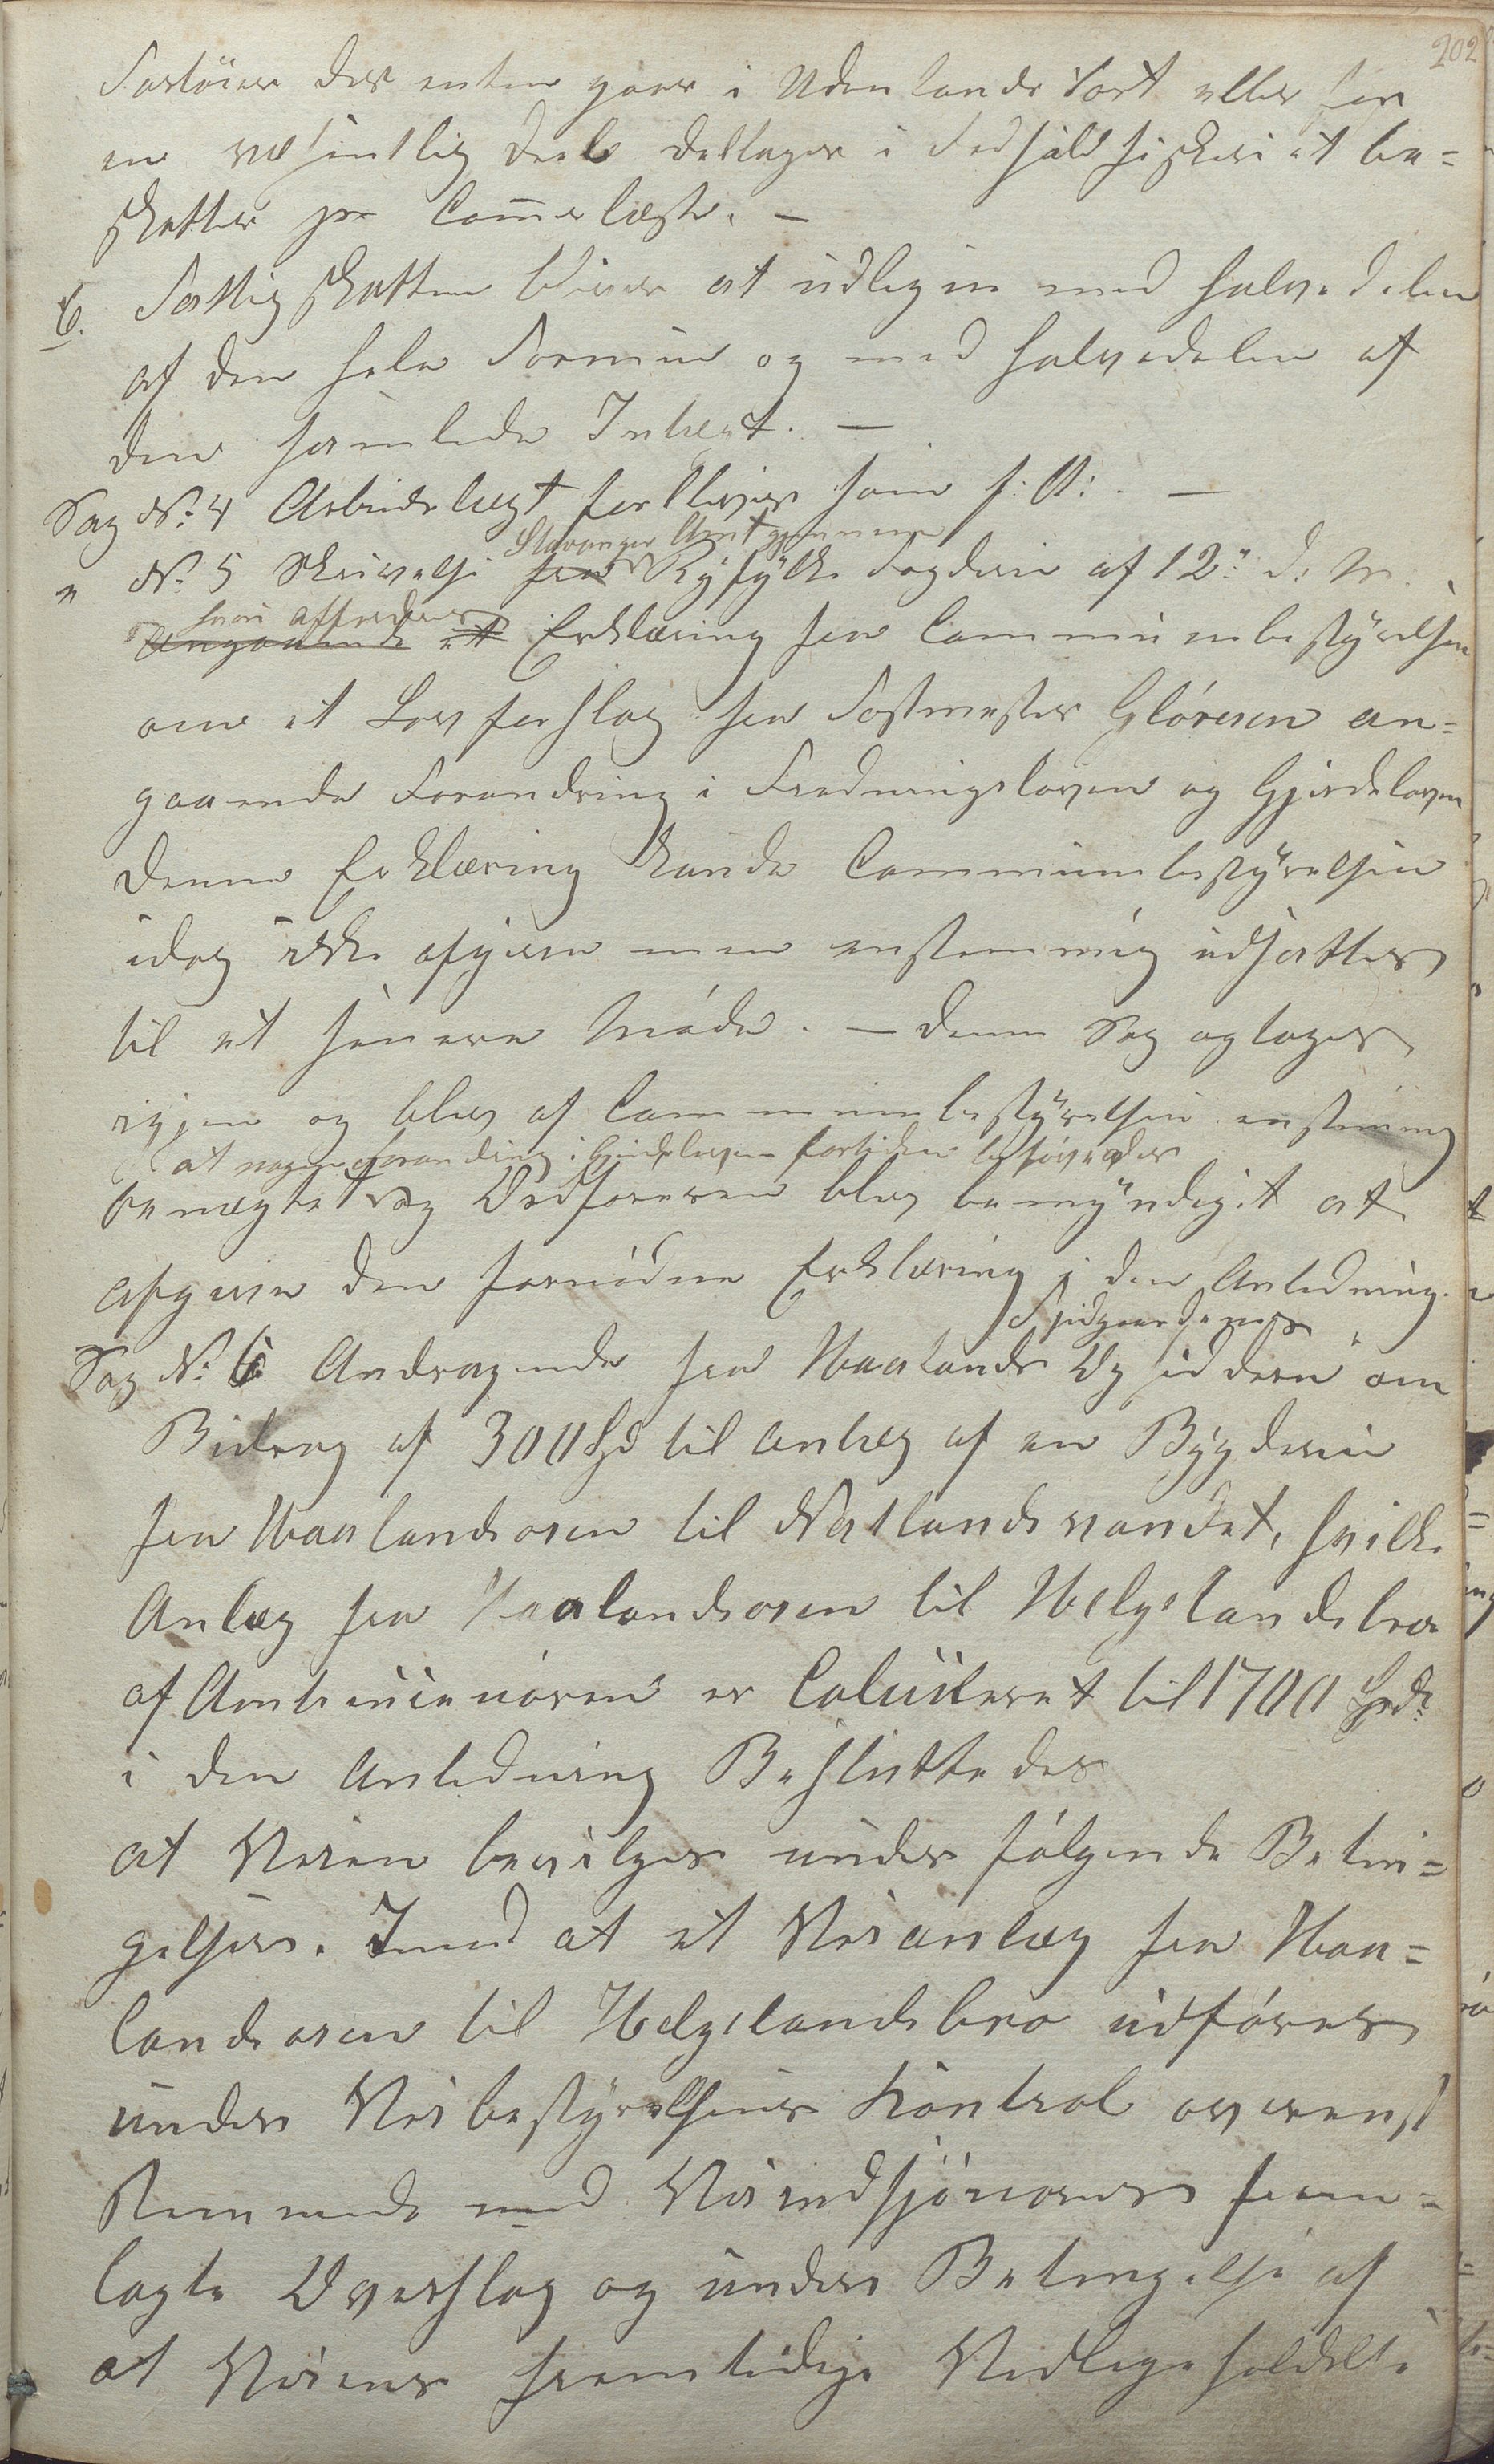 202
Fartöier der enten gaar i Udenlands Fart eller for
en væsentlig Deel deltager i Fedsildfiskeriet be=
skattes pr Commerlæst. —
6. Fattigskatten bliver at udlignes med halvedelen
af den hele Formue og med halvedelen af
den samlede Indtægt. —
Sag No. 4 Arbeidslægt forbliver som f: A: . —
" No. 5 Skrivelse fra Stavanger Amt gjennem Ryfylke Fogderie af 12te d: M.
Angaaende et hvori affordres Erklæring fra Communebestyrelsen
om et Lovforslag fra Postmester Glørsen an=
gaaende Forandring i Fredningsloven og Gjerdeloven
denne Erklæring kunde Communebestyrelsen
idag ikke afgives men enstemmig udsattes
til et senere Møde. — denne Sag optoges
igjen og blev af Communebestyrelsen enstemig
at nogen Forandring i Gjerdeloven fortiden behøvedes
benægtet og Ordføreren blev bemyndiget at
afgive den fornødne Erklæring i den Anledning.
Sag No. 6 Andragende fra Haalands Opsiddere om
Bidrag af 300 Spd til Anlæg af en Bygdevei
fra Haalandsosen til Natlandsvandet, hvilke
Anlæg fra Haalandsosen til Helgelandsbro
af Amtsingeniøren er Calculeret til 1700 Spd.
i den Anledning Besluttedes
at Veien bevilges under følgende Betin=
gelser. Imod at et Veianlæg fra Haa=
landsosen til Helgelandsbro udføres
under Veibestyrelsens Kontrol overenst
kemmende med Veiindsjøniørens frem=
lagte Overslag og under Betingelse af
at Veiens fremtidige Vedligeholdelse